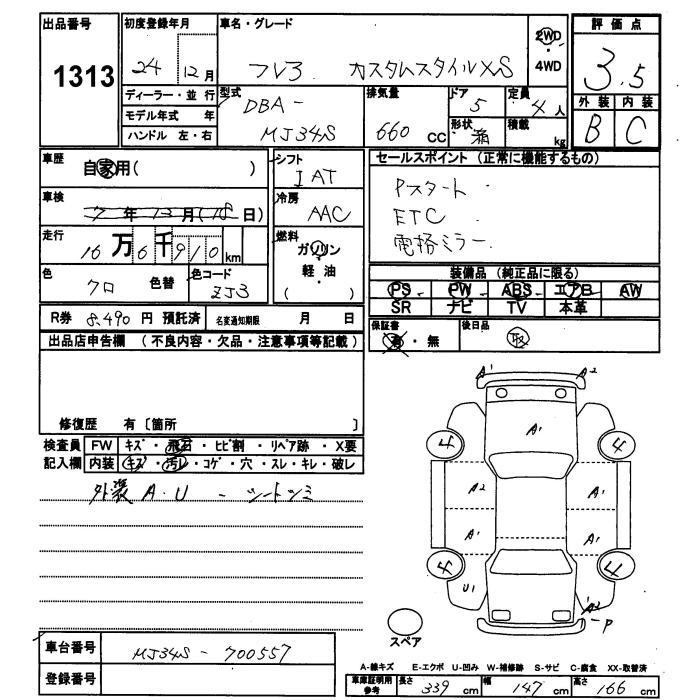 出品番号
1313
初度登録年月
24 12月
ディーラー・並行
モデル年式 年
ハンドル 左・右
車名・グレード
フレア カスタムスタイルXS
2WD
4WD
評価点
3.5
外装 内装
B C
型式
DBA-
MJ34S
排気量
660 cc
ドア
5
定員
4 人
形状
積載
kg
車歴
自家用( )
車検
7年12月(18日)
走行
16万6千910km
色
クロ 色替
色コード
ZJ3
シフト
IAT
冷房
AAC
燃料
ガソリン
軽・油
( )
セールスポイント(正常に機能するもの)
Pスタート
ETC
電格ミラー
装備品(純正品に限る)
PS PW ABS エアB AW
SR ナビ TV 本革
R券 8,490 円 預託済 名変通知期限 月 日
保証書
有・無
後日品
取
出品店申告欄(不良内容・欠品・注意事項等記載)
修復歴 有〔箇所 〕
検査員 FW キズ・飛石・ヒビ割・リペア跡・X要
記入欄 内装 キズ・汚レ・コゲ・穴・スレ・キレ・破レ
外装 A.U - シートシミ
A1 A2
4 A1 4
A2 A1
A1 A1
4 4
U1 A2 P
スペア
車台番号
MJ34S-700557
登録番号
A-線キズ E-エクボ U-凹み W-補修跡 S-サビ C-腐食 XX-取替済
車庫証明用
参考
長さ 339 cm 幅 147 cm 高さ 166 cm